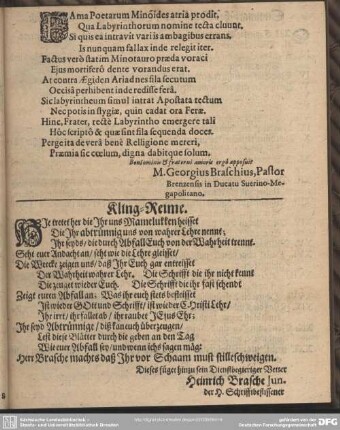 FAma Poetarum Minôides atria prodit,
Qua Labyrinthorum nomine tecta cluunt.
Si quis ea intravit variis ambagibus errans,
Is nunquam fallax inde relegit iter.
Factus verò statim Minotauro præda voraci
Ejus mortiferô dente vorandus erat.
At contra Ægiden Ariadnes fila secutum
Occisâ perhibent inde redisse ferâ.
Sic labyrintheum simul intrat Apostata tectum
Nec potis in stygiæ, quin cadat ora Feræ.
Hinc, Frater, rectè Labyrintho emergere tali
Hôc scriptô & quæ sint fila sequenda doces.
Perge ita de verâ benè Religione mereri,
Præmia sic cœlum, digna dabitque solum.
M. Georgius Braschius, Pastor
Brenzensis in Ducatu Suerino-Me-
gapolitano.
Kling-Reime.
HJe tretet her die Jhr uns Mamelukken heisset
Die Jhr abtrünnig uns von wahrer Lehre nennt;
Jhr seyds / die durch Abfall Euch von der Wahrheit trennt.
Seht euer Andacht an / seht wie die Lehre gleisset /
Die Wercke zeigen uns / daß Jhr Euch gar entreisset
Der Wahrheit wahrer Lehr. Die Schrifft die ihr nicht kennt
Die zeuget wieder Euch. Die Schrifft die ihr fast schendet
Zeigt euren Abfall an. Was ihr euch stets befleisset
Jst wieder GOtt und Schrifft / ist wieder CHristi Lehr /
Jhr irrt / ihr fallet ab / ihr raubet JEsus Ehr:
Jhr seyd Abtrünnige / diß kan euch überzeugen /
Lest diese Blätter durch die geben an den Tag
Wie euer Abfall sey / und wenn ichs sagen mag:
Herr Brasche machts daß Jhr vor Schaam must stille schweigen.
Dieses füget hinzu sein Dienstbegieriger Vetter
Heinrich Brasche Jun.
der H. Schrifft beflissener